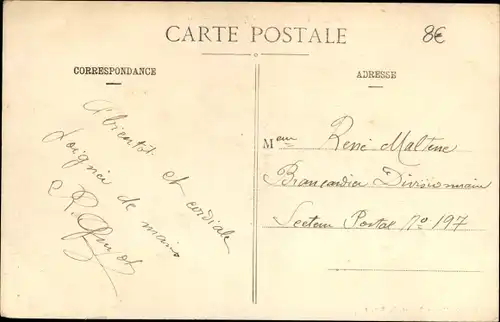 CARTE POSTALE
8€
CORRESPONDANCE
A bientôt et cordiale
poignée de mains
R.
ADRESSE
Meur René Maltine
Brancardier Divisionnaire
Secteur Postal No 197